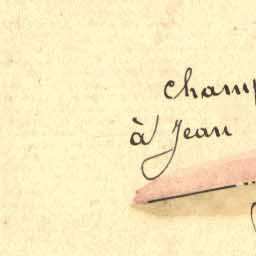 champ
à Jean